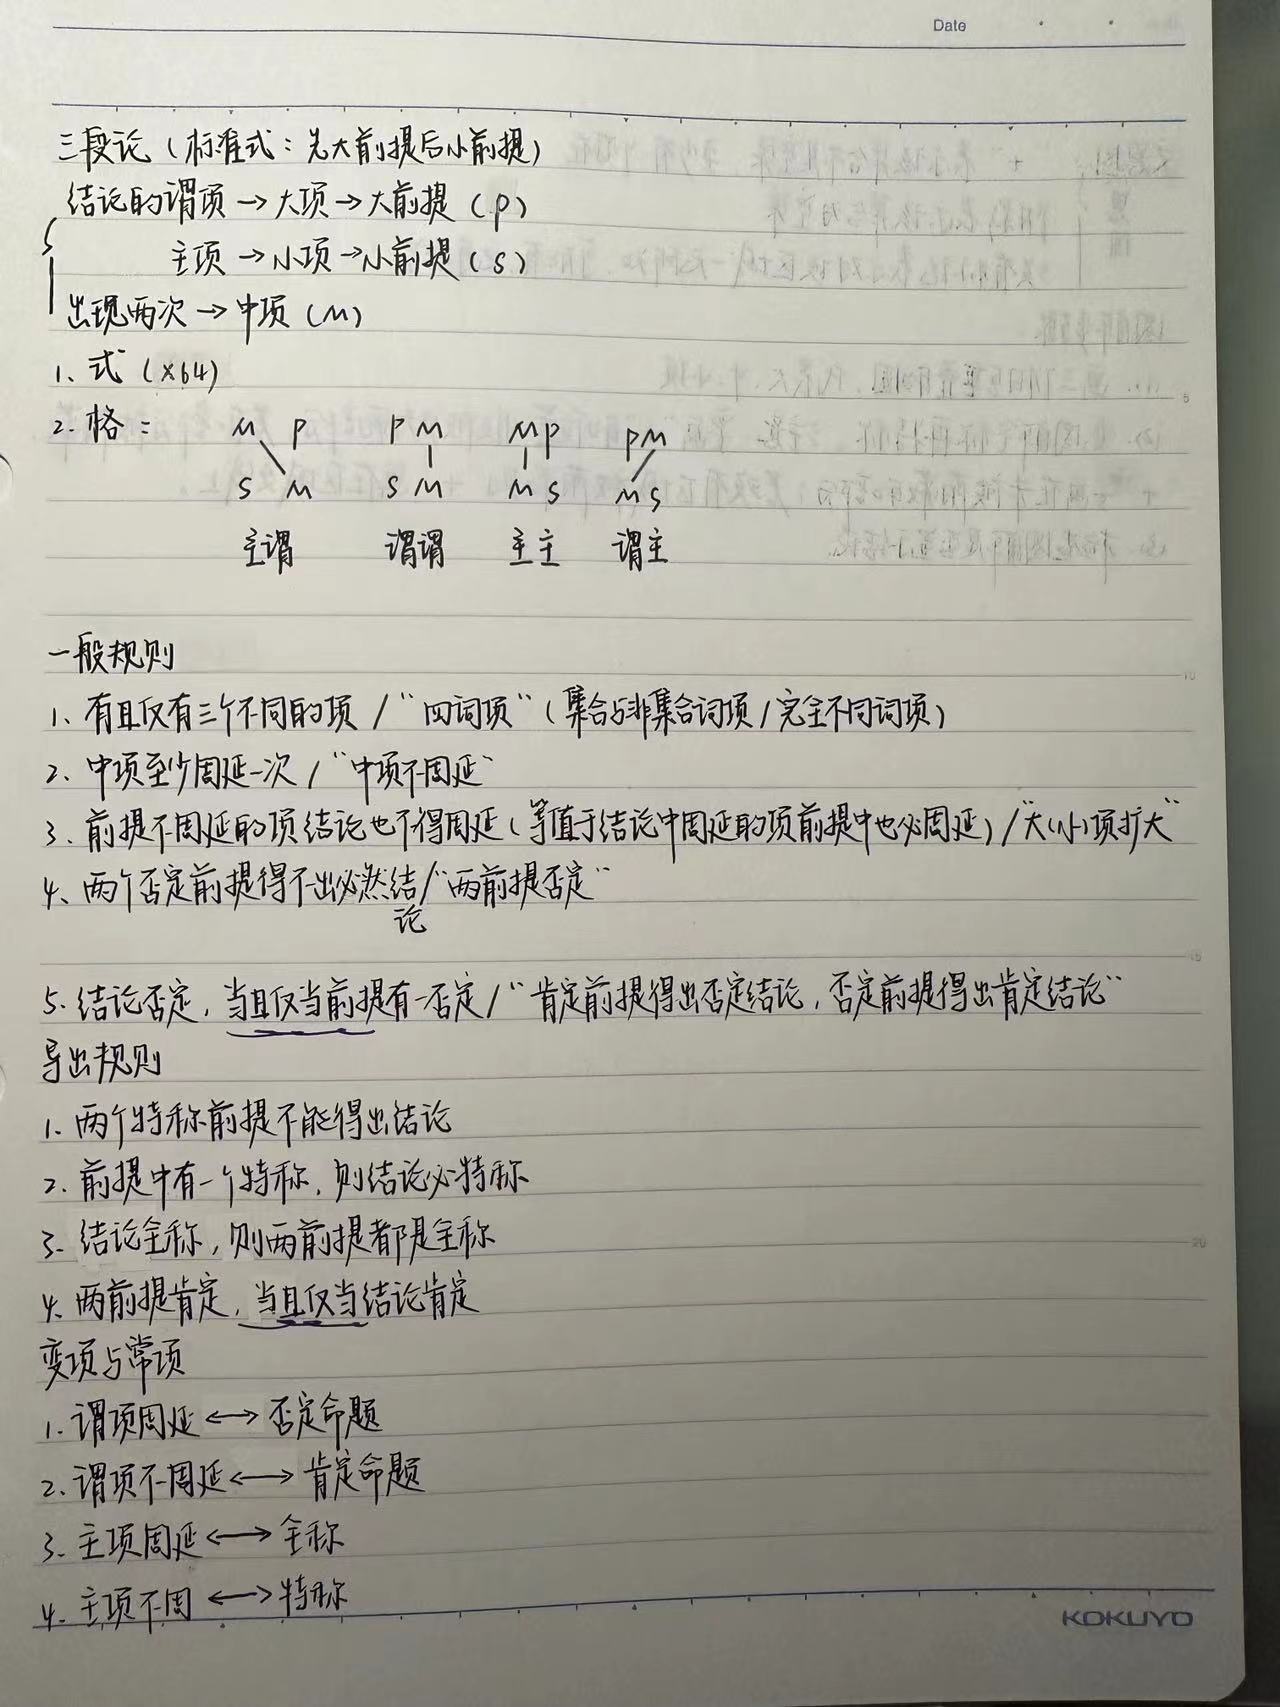 Date
三段论（标准式：先大前提后小前提）
结论的谓项→大项→大前提（P）
主项→小项→小前提（S）
出现两次→中项（M）
1、式（×64）
2、格：
M P P M M P P M
S M S M M S M S
主谓 谓谓 主主 谓主
一般规则
1、有且仅有三个不同的项/“四词项”（集合与非集合词项/完全不同词项）
2、中项至少周延一次/“中项不周延”
3、前提不周延的项结论也不得周延（等值于结论中周延的项前提中也必周延）/“大（小）项扩大”
4、两个否定前提得不出必然结论/“两前提否定”
5.结论否定，当且仅当前提有一否定/“肯定前提得出否定结论，否定前提得出肯定结论”
导出规则
1.两个特称前提不能得出结论
2.前提中有一个特称，则结论必特称
3.结论全称，则两前提都是全称
4.两前提肯定，当且仅当结论肯定
变项与常项
1.谓项周延↔否定命题
2.谓项不周延↔肯定命题
3.主项周延↔全称
4.主项不周↔特称
KOKUYO